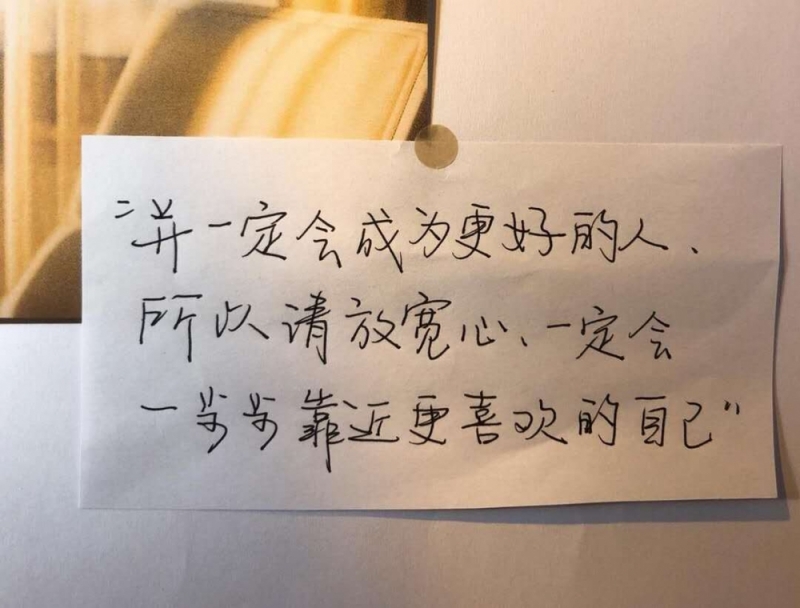 “并一定会成为更好的人、
所以请放宽心、一定会
一步步靠近更喜欢的自己”